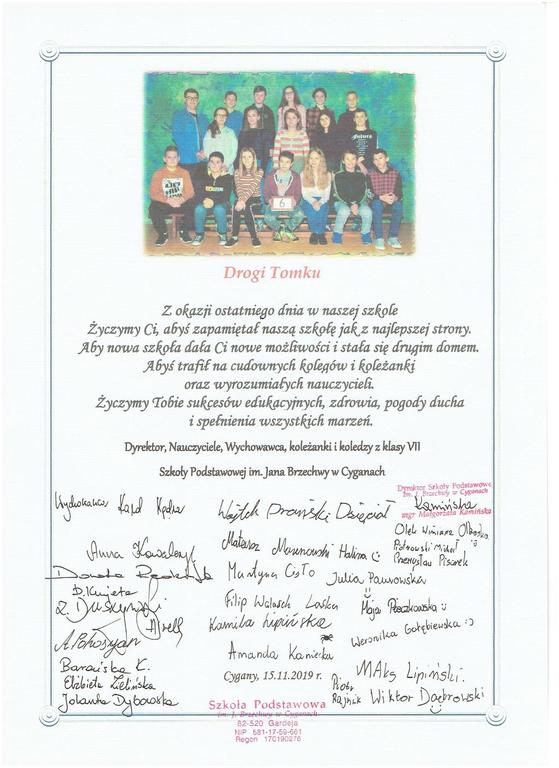 6
Drogi Tomku
Z okazji ostatniego dnia w naszej szkole
Życzymy Ci, abyś zapamiętał naszą szkołę jak z najlepszej strony.
Aby nowa szkoła dała Ci nowe możliwości i stała się drugim domem.
Abyś trafił na cudownych kolegów i koleżanki
oraz wyrozumiałych nauczycieli.
Życzymy Tobie sukcesów edukacyjnych, zdrowia, pogody ducha
i spełnienia wszystkich marzeń.
Dyrektor, Nauczyciele, Wychowawca, koleżanki i koledzy z klasy VII
Szkoły Podstawowej im. Jana Brzechwy w Cyganach
Dyrektor Szkoły Podstawowej
im. J. Brzechwy w Cyganach
Kamińska
mgr Małgorzata Kamińska
Wychowawca Karol
Wojtek
Mateusz
Halina
Przemysław Pisarek
Anna Kowalczyk
Dorota
Martyna
Julia
Filip
Maja
Kamila Lipińska
Weronika Gołębiewska :)
Amanda Kaniecka
Barcińska K.
Elżbieta Zielińska
Jolanta Dybowska
Maks Lipiński.
Piotr
Rajnik Wiktor Dąbrowski
Cygany, 15.11.2019 r.
Szkoła Podstawowa
im. J. Brzechwy w Cyganach
82-520 Gardeja
NIP 581-17-59-661
Regon 170190276